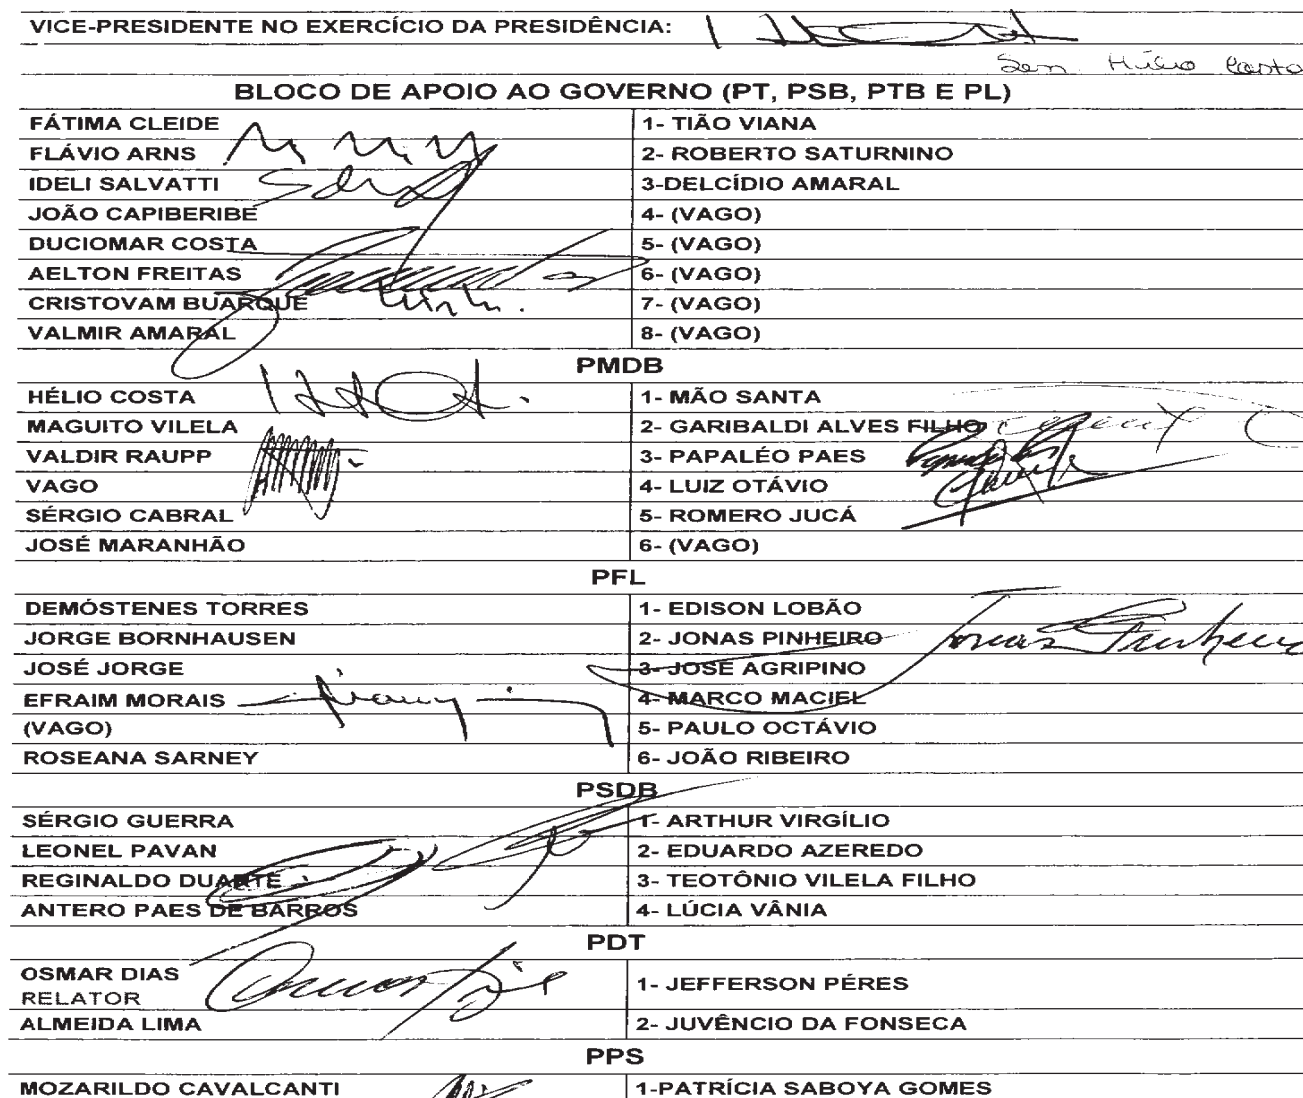 VICE-PRESIDENTE NO EXERCÍCIO DA PRESIDÊNCIA:
Sen. Hélio Costa
BLOCO DE APOIO AO GOVERNO (PT, PSB, PTB E PL)
FÁTIMA CLEIDE 1- TIÃO VIANA
FLÁVIO ARNS 2- ROBERTO SATURNINO
IDELI SALVATTI 3-DELCÍDIO AMARAL
JOÃO CAPIBERIBE 4- (VAGO)
DUCIOMAR COSTA 5- (VAGO)
AELTON FREITAS 6- (VAGO)
CRISTOVAM BUARQUE 7- (VAGO)
VALMIR AMARAL 8- (VAGO)
PMDB
HÉLIO COSTA 1- MÃO SANTA
MAGUITO VILELA 2- GARIBALDI ALVES FILHO
VALDIR RAUPP 3- PAPALÉO PAES
VAGO 4- LUIZ OTÁVIO
SÉRGIO CABRAL 5- ROMERO JUCÁ
JOSÉ MARANHÃO 6- (VAGO)
PFL
DEMÓSTENES TORRES 1- EDISON LOBÃO
JORGE BORNHAUSEN 2- JONAS PINHEIRO Jonas Pinheiro
JOSÉ JORGE 3- JOSÉ AGRIPINO
EFRAIM MORAIS 4- MARCO MACIEL
(VAGO) 5- PAULO OCTÁVIO
ROSEANA SARNEY 6- JOÃO RIBEIRO
PSDB
SÉRGIO GUERRA 1- ARTHUR VIRGÍLIO
LEONEL PAVAN 2- EDUARDO AZEREDO
REGINALDO DUARTE 3- TEOTÔNIO VILELA FILHO
ANTERO PAES DE BARROS 4- LÚCIA VÂNIA
PDT
OSMAR DIAS
RELATOR 1- JEFFERSON PÉRES
ALMEIDA LIMA 2- JUVÊNCIO DA FONSECA
PPS
MOZARILDO CAVALCANTI 1-PATRÍCIA SABOYA GOMES